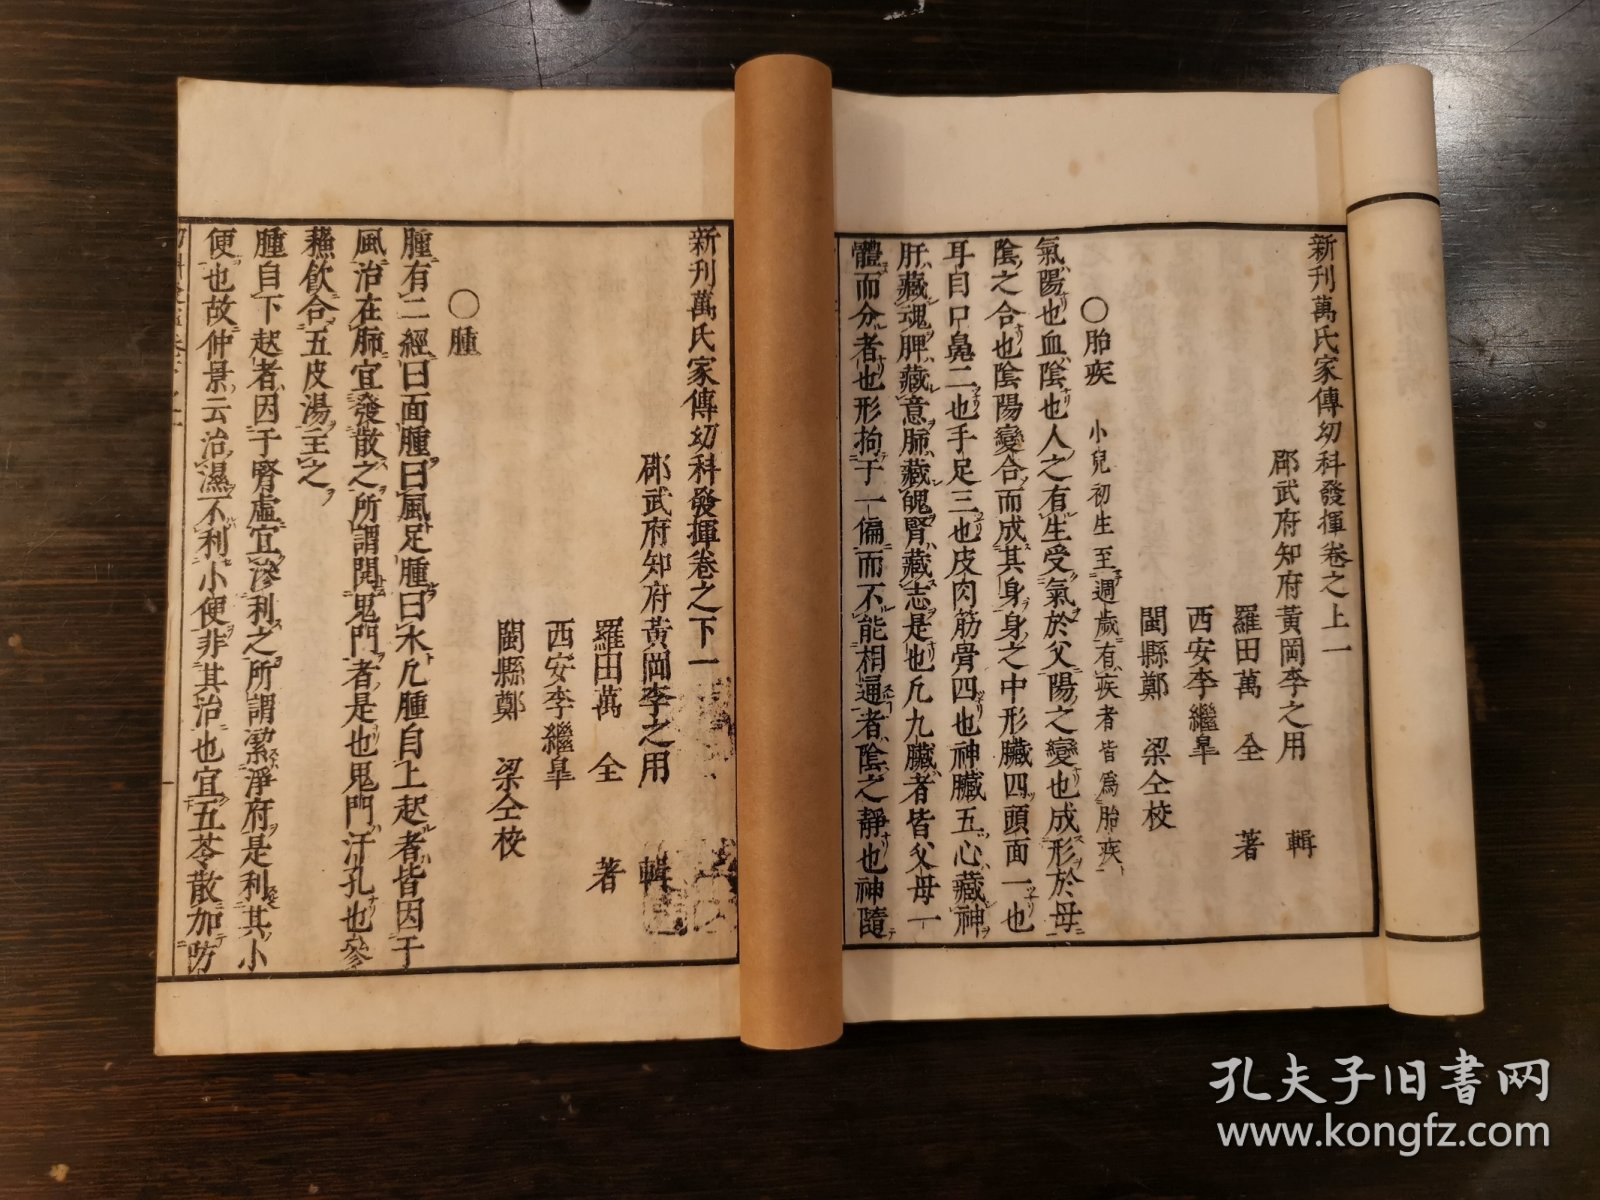 新刊萬氏家傳幼科發揮卷之上一
郡武府知府黃岡李之用 輯
羅田萬 全 著
西安李繼臯
閩縣鄭 梁仝校
○胎疾 小兒初生至週歲有疾者皆爲胎疾
氣陽也血陰也人之有生受氣於父陽之變也成形於母
陰之合也陰陽變合而成其身身之中形臟四頭面一也
耳目口鼻二也手足三也皮肉筋骨四也神臟五心藏神
肝藏魂脾藏意肺藏魄腎藏志是也凡九臟者皆父母一
體而分者也形拘于一偏而不能相通者陰之靜也神隨
新刊萬氏家傳幼科發揮卷之下一
邵武府知府黃岡李之用 輯
羅田萬 全 著
西安李繼臯
閩縣鄭 梁仝校
○腫
腫有二經曰面腫曰風足腫曰水凡腫自上起者皆因于
風治在肺宜發散之所謂開鬼門者是也鬼門汗孔也參
蘓飲合五皮湯主之
腫自下起者因于腎虛宜滲利之所謂潔淨府是利其小
便也故仲景云治濕不利小便非其治也宜五苓散加防
孔夫子旧书网
www.kongfz.com